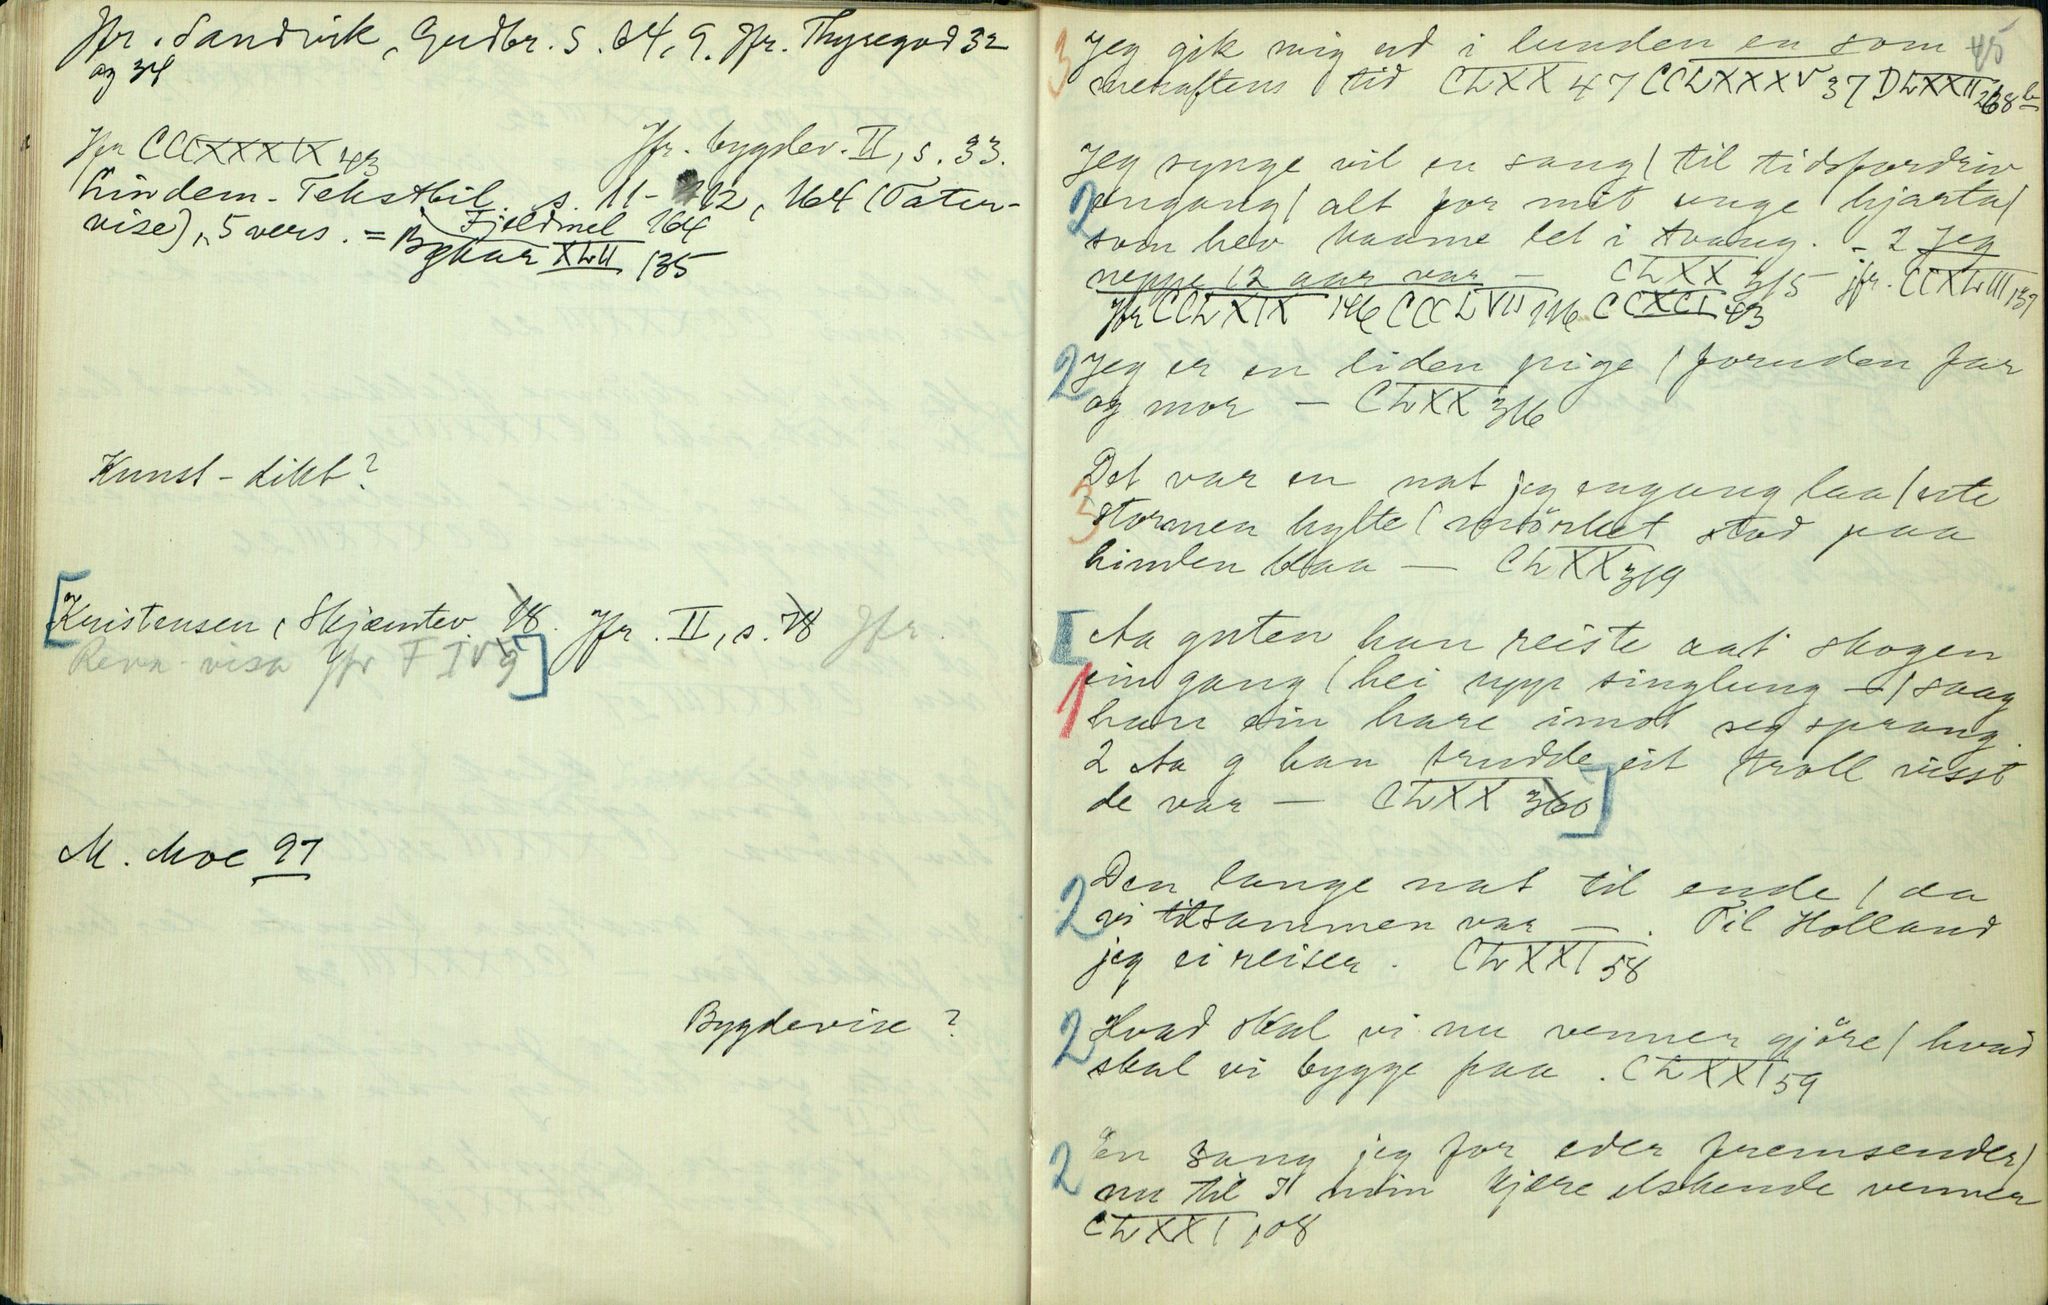 Jfr. Sandvik, Gudbr. s. 64, 9. Jfr. Thyregod 32
og 34
Jfr CCCXXXIX 43 Jfr. bygdev. II, s. 33.
Lindem. Tekstbil. s. 11-12, 164 (Tater-
vise), 5 vers. = Fjeldmel 164
XLII 135
Kunst-dikt?
[Kristensen, Skjæmtev. 18. Jfr. II, s. 78 Jfr.
Reva-visa jfr F IV 9]
M. Moe 97
Bygdevise?
45
3 Jeg gik mig ud i lunden en som-
meraftens tid CLXX 47 CCLXXXV 37 DLXXII 268 b
Jeg synge vil en sang / til tidsfordriv
2 engang / alt for mit unge hjarta /
som hev kaame let i tvang. - 2 Jeg
neppe 12 aar var — CLXX 315 - jfr. CCXLIII 139
Jfr CCLXIX 146 CCCLVII 116 CCXCI 43
2 Jeg er en liden pige / foruden far
og mor — CLXX 316
Det var en nat jeg engang laa / ute
3 stormen hylte / mörket stod paa
himlen blaa — CLXX 319
[Aa guten han reiste aat skogen
1 ein gang / hei upp singlung — / saag
han ein hare imot seg sprang.
2 Aa g han trudde eit troll visst
de var — CLXX 360]
Den lange nat til ende / da
2 vi tilsammen var —. Til Holland
jeg ei reiser. CLXXI 58
2 Hvad skal vi nu venner gjöre / hvad
skal vi bygge paa. CLXXI 59
En sang jeg for eder fremsender /
2 nu til I min kjære elskende venner
CLXXI 108